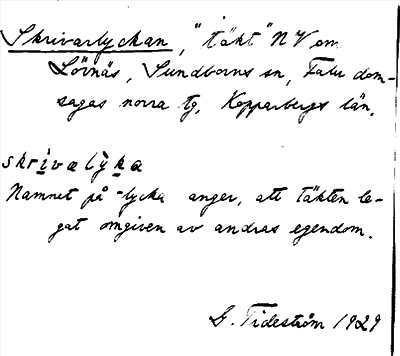 Skrivarlyckan, "täkt" NV om
Lövnäs, Sundborns sn, Falu dom-
sagas norra tg, Kopparbergs län.
skrivalỳka
Namnet på -lycka anger, att täkten le-
gat omgiven av andras egendom.
G. Tideström 1929